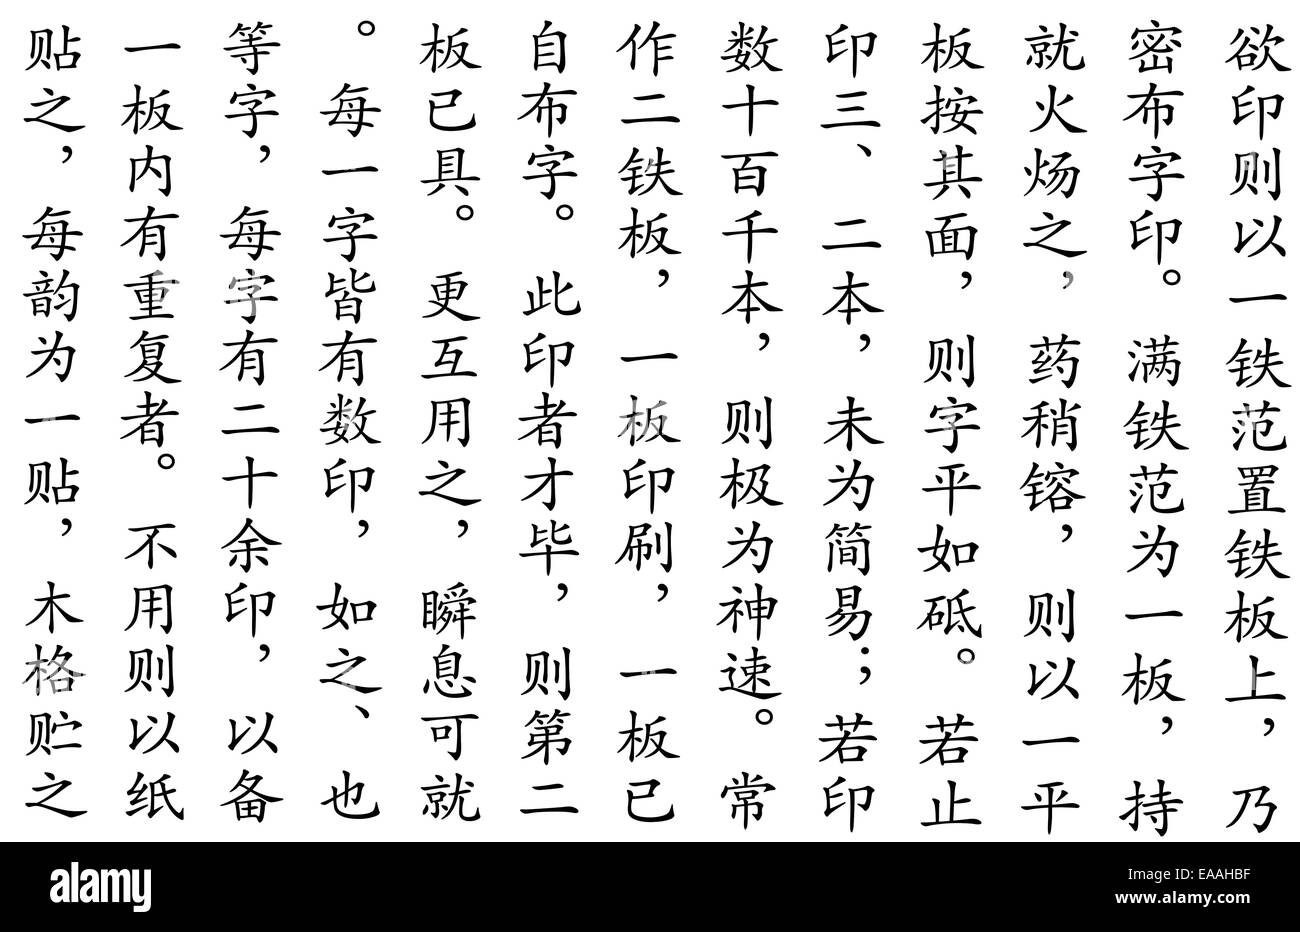 欲印则以一铁范置铁板上，乃
密布字印。满铁范为一板，持
就火炀之，药稍镕，则以一平
板按其面，则字平如砥。若止
印三、二本，未为简易；若印
数十百千本，则极为神速。常
作二铁板，一板印刷，一板已
自布字。此印者才毕，则第二
板已具。更互用之，瞬息可就
。每一字皆有数印，如之、也
等字，每字有二十余印，以备
一板内有重复者。不用则以纸
贴之，每韵为一贴，木格贮之
alamy
Image ID: EAAHBF
www.alamy.com